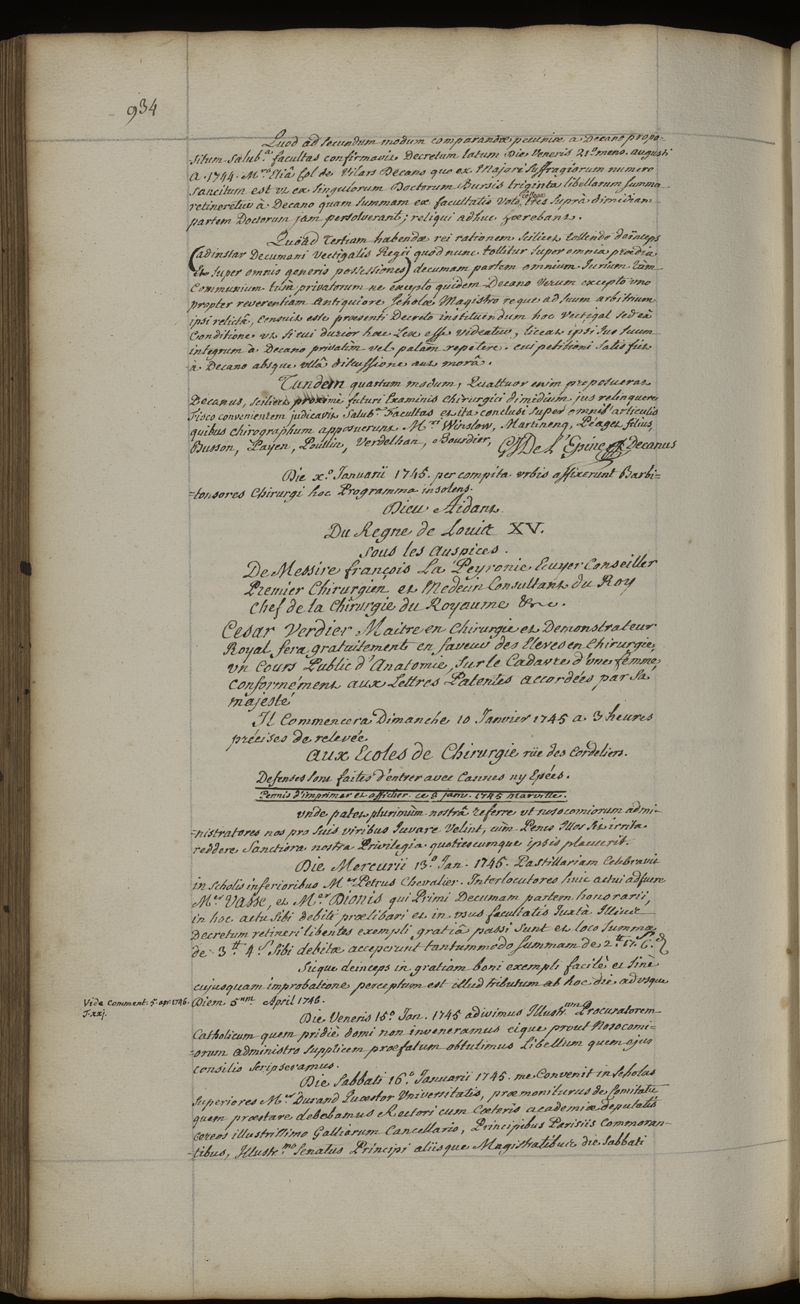 934
Quod ad secundum modum comparandæ pecuniæ a Decano propo-
situm Salub.ª facultas confirmavit Decretum latum Die Veneris 21º mens. augusti
A. 1744. M.ro Eliâ Col de Vilars Decano quo ex Majore Suffragiorum numero
Sancitum est ut ex Singulorum Doctorum Bursis triginta libellarum summa
retineretur à Decano quam summam ex facultatis voto tres supra dimidiam
partem Doctorum jam persolverant; reliqui adhuc
Quoad Tertiam habendæ rei rationem scilicet tollendo deinceps
(ad instar Decumani Vectigalis Regii quod nunc tollitur super omnia prædia
et super omnis generis possessiones) decumam partem omnium Jurium tam
Communium tùm privatorum ne excepto quidem Decano Verum excepto uno
propter reverentiam Antiquiore Scholæ Magistro reque ad suum arbitrium
ipsi relictâ, Censuit esse præsenti Decreto instituendum hoc Vectigal sed eâ
Conditione ut si cui durior hæc Lex esse videatur, liceat ipsi sive suum
integrum à Decano privatim vel palàm repetere. cui petitioni satis fiet
à Decano absque ullâ discussione aut morâ.
Tandem quartum modum, Quattuor enim proposuerat
Decanus, scilicet proximè futuri Examinis Chirurgici dimidium jus relinquere
Fisco convenientem judicavit Salub. Facultas et ita conclusi super omnes articulis
quibus chirographum apposuerunt M.ri Winslow, Martinenq, Péaget filius,
Busson, Payen, Poullin, Verdelhan, Bourdier, GJ De L'Epine Decanus
Die x.º Januarii 1745. per compita urbis affixerunt Barbi=
=tonsores Chirurgi hoc Programma insolens.
Dieu Aidant
Du Regne de Louis XV.
Sous les auspices.
De Messire françois La Peyronie Ecuyer Conseiller
Premier Chirurgien et Medecin Consultant du Roy
Chef de la Chirurgie du Royaume &c.
Cesar Verdier Maitre en Chirurgie et Demonstrateur
Royal fera gratuitement en faveur des Eleves en Chirurgie,
un Cours Public d'Anatomie, Sur le Cadavre d'une femme,
Conformément aux Lettres Patentes accordées par Sa
majesté
Il Commencera Dimanche 10 Janvier 1745 a 3 heures
précises de relevée
aux Ecoles de Chirurgie rüe des Cordeliers.
Defenses sont faites d'entrer avec Cannes ny Epées.
Permis d'imprimer et afficher. ce 8 janv. 1745 Marville.
Unde patet plurimùm nostrâ referre ut nosocomiorum admi-
=nistratores nos pro suis viribus Juvare Velint, cùm Penes Illos sit irrita
reddere Sanctiora nostra Privilegia quotiescumque ipsis placuerit.
Die Mercurii 13.º Jan. 1745. Pastillariam Celebravit
in Scholis inferioribus M.er Petrus Chevalier. Interlocutores huic actui adfuere
M.er Vasse, et M.er Dionis qui Primi Decumam partem honorarii,
in hoc actu sibi debiti prælibari et in usus facultatis Juxtà Illius
Decretum retineri libentes exempli gratiâ passi sunt et loco summæ
de 3 tt 4 s. Sibi debitæ acceperunt tantummodo summam de 2 tt 17. s 6. d
Sicque deinceps in gratiam boni exempli facilè et sinè
cujusquam improbatione perceptum est illud tributum ab hoc die ad usque
Vide Comment. 5ª apr. 1746.
Diem 5am April 1746.
Die Veneris 15º Jan. 1745 adivimus Illustr.mum Procuratorem
Catholicum quem pridiè domi non inveneramus eique prout Nosocomi=
=orum administro supplicem præfatum obtulimus Libellum quem ejus
Consilio scripseramus.
Die Sabbati 16.º Januarii 1745. me Convenit in Scholas
Superiores M.er Durand Quæstor Universitatis, præmoniturus de Comitatu
quem præstare debebamus Rectori cum Cæteris academiæ deputatis
Cereos illustrissimo Galliarum Cancellario, Principibus Parisiis Commoran-
=tibus, Illustr.mo Senatus Principi aliisque Magistratibus die Sabbati